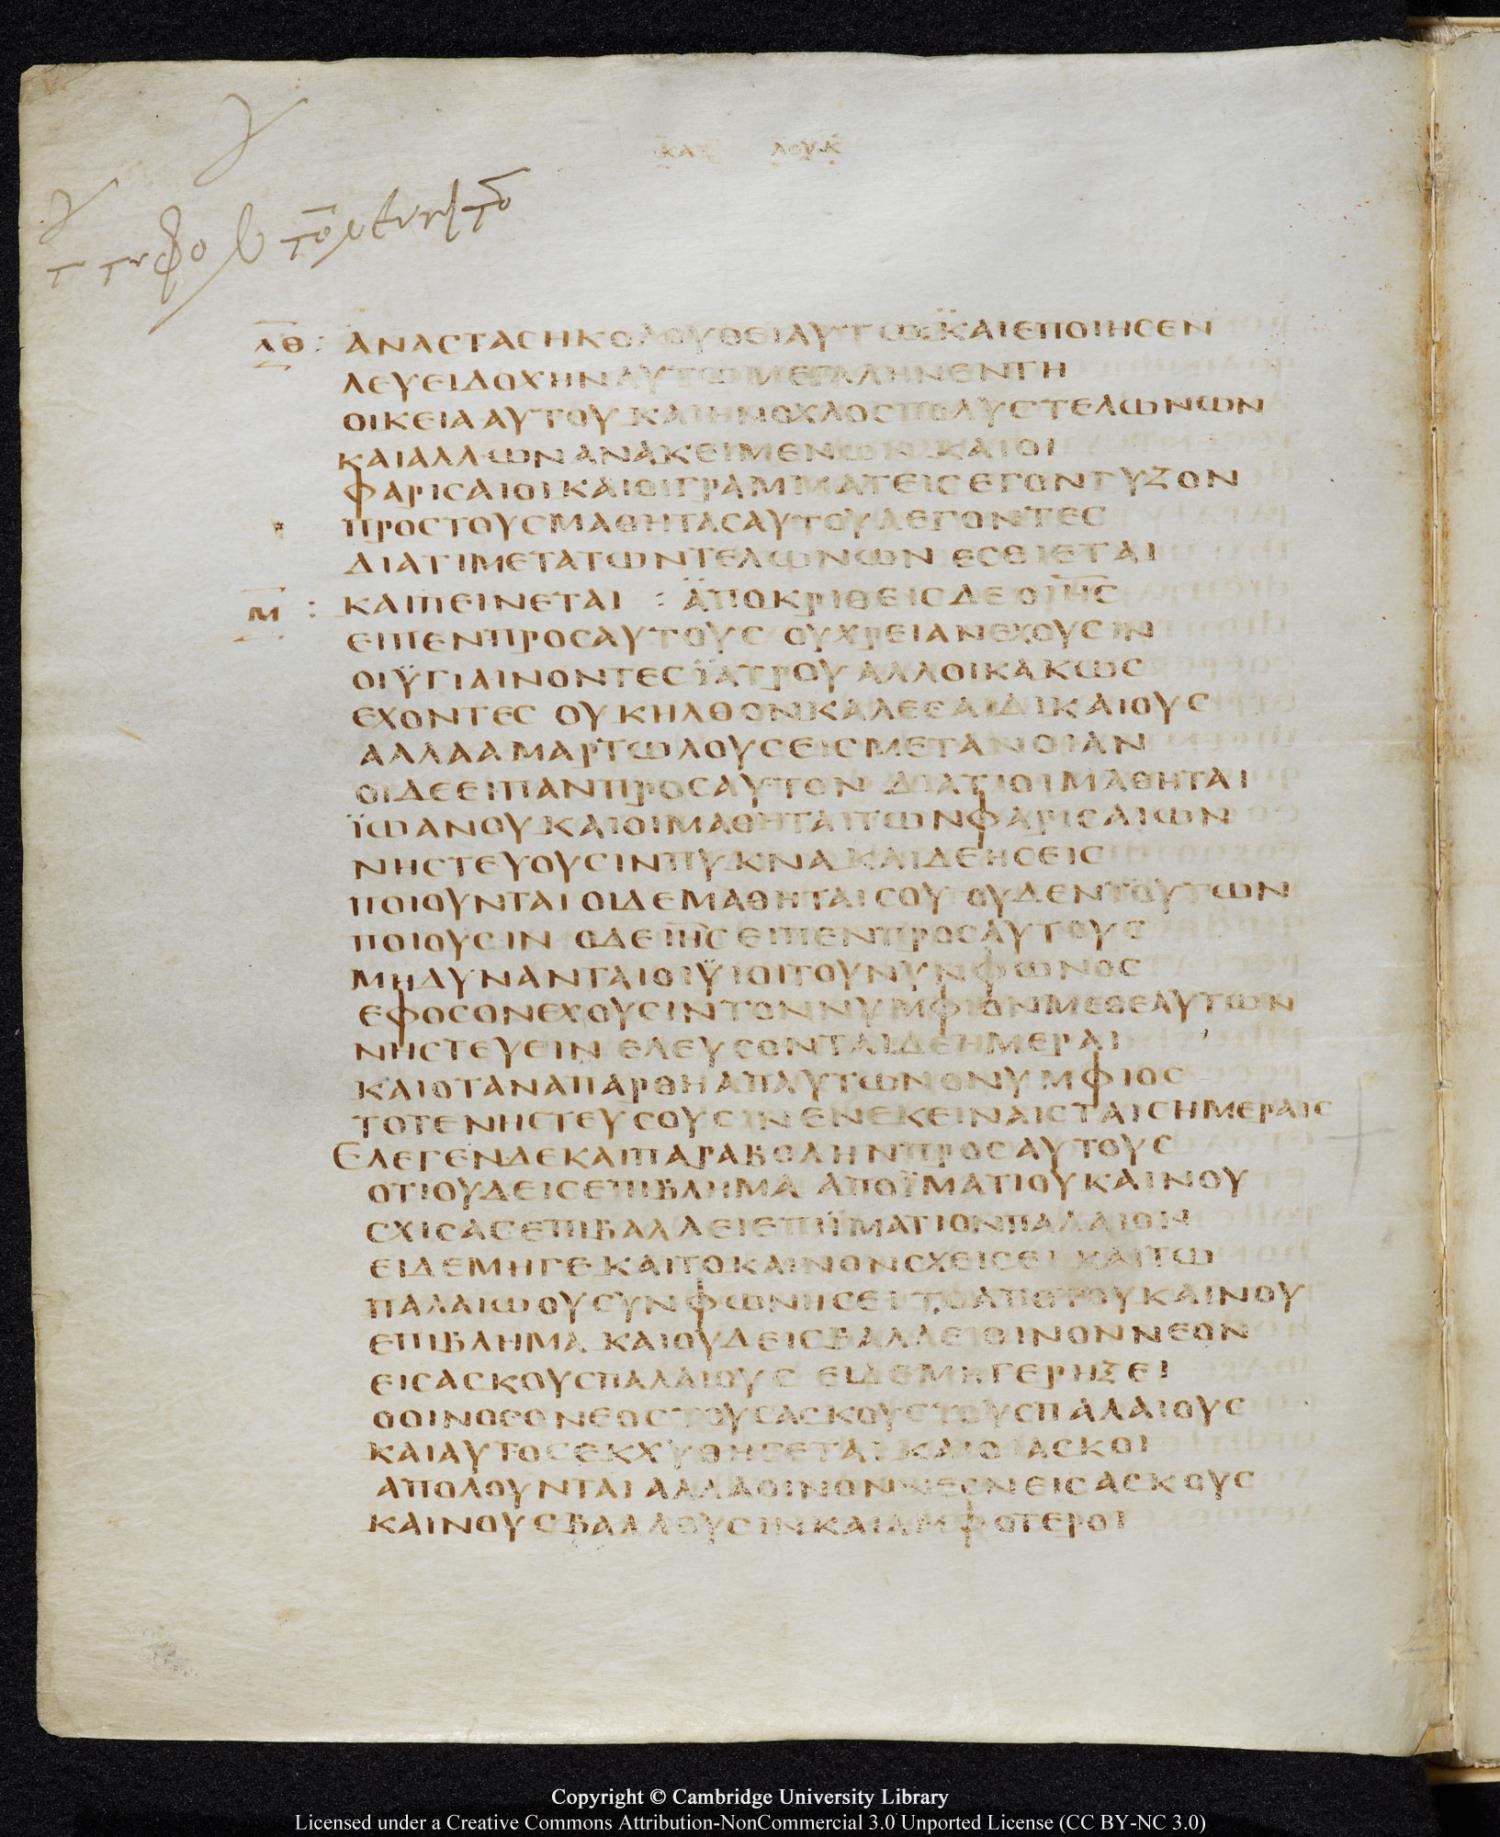 ΚΑΤ ΛΟΥΚ
ΛΘ : ΑΝΑСΤΑСΗΚΟΛΟΥΘΕΙΑΥΤΩ ΚΑΙΕΠΟΙΗСΕΝ
ΛΕΥΕΙΔΟΧΗΝΑΥΤΩΜΕΓΑΛΗΝΕΝΤΗ
ΟΙΚΕΙΑΑΥΤΟΥ ΚΑΙΗΝΟΧΛΟСΠΟΛΥСΤΕΛΩΝΩΝ
ΚΑΙΑΛΛΩΝΑΝΑΚΕΙΜΕΝΩΝ ΚΑΙΟΙ
ΦΑΡΙСΑΙΟΙΚΑΙΟΙΓΡΑΜΜΑΤΕΙСΕΓΟΝΓΥΖΟΝ
ΠΡΟСΤΟΥСΜΑΘΗΤΑСΑΥΤΟΥΛΕΓΟΝΤΕС
ΔΙΑΤΙΜΕΤΑΤΩΝΤΕΛΩΝΩΝ ΕСΘΙΕΤΑΙ
Μ : ΚΑΙΠΕΙΝΕΤΑΙ : ΑΠΟΚΡΙΘΕΙСΔΕΟΙΗС
ΕΙΠΕΝΠΡΟСΑΥΤΟΥС ΟΥΧΡΕΙΑΝΕΧΟΥСΙΝ
ΟΙΫΓΙΑΙΝΟΝΤΕСΪΑΤΡΟΥ ΑΛΛΟΙΚΑΚΩС
ΕΧΟΝΤΕС ΟΥΚΗΛΘΟΝΚΑΛΕСΑΙΔΙΚΑΙΟΥС
ΑΛΛΑΑΜΑΡΤΩΛΟΥСΕΙСΜΕΤΑΝΟΙΑΝ
ΟΙΔΕΕΙΠΑΝΠΡΟСΑΥΤΟΝ ΔΙΑΤΙΟΙΜΑΘΗΤΑΙ
ΪΩΑΝΟΥ ΚΑΙΟΙΜΑΘΗΤΑΙΤΩΝΦΑΡΙСΑΙΩΝ
ΝΗСΤΕΥΟΥСΙΝΠΥΚΝΑ ΚΑΙΔΕΗСΕΙС
ΠΟΙΟΥΝΤΑΙΟΙΔΕΜΑΘΗΤΑΙСΟΥ ΟΥΔΕΝΤΟΥΤΩΝ
ΠΟΙΟΥСΙΝ ΟΔΕΙΗСΕΙΠΕΝΠΡΟСΑΥΤΟΥС
ΜΗΔΥΝΑΝΤΑΙΟΙΫΙΟΙΤΟΥΝΥΝΦΩΝΟС
ΕΦΟСΟΝΕΧΟΥСΙΝΤΟΝΝΥΜΦΙΟΝΜΕΘΕΑΥΤΩΝ
ΝΗСΤΕΥΕΙΝ ΕΛΕΥСΟΝΤΑΙΔΕΗΜΕΡΑΙ
ΚΑΙΟΤΑΝΑΠΑΡΘΗΑΠΑΥΤΩΝΟΝΥΜΦΙΟС
ΤΟΤΕΝΗСΤΕΥСΟΥСΙΝΕΝΕΚΕΙΝΑΙСΤΑΙСΗΜΕΡΑΙС
ΕΛΕΓΕΝΔΕΚΑΙΠΑΡΑΒΟΛΗΝΠΡΟСΑΥΤΟΥС
ΟΤΙΟΥΔΕΙСΕΠΙΒΛΗΜΑ ΑΠΟΪΜΑΤΙΟΥΚΑΙΝΟΥ
СΧΙСΑСΕΠΙΒΑΛΛΕΙΕΠΪΜΑΤΙΟΝΠΑΛΑΙΟΝ
ΕΙΔΕΜΗΓΕ ΚΑΙΤΟΚΑΙΝΟΝСΧΕΙСΕΙ ΚΑΙΤΩ
ΠΑΛΑΙΩΟΥСΥΝΦΩΝΗСΕΙΤΟΑΠΟΤΟΥΚΑΙΝΟΥ
ΕΠΙΒΛΗΜΑ ΚΑΙΟΥΔΕΙСΒΑΛΛΕΙΟΙΝΟΝΝΕΟΝ
ΕΙСΑСΚΟΥСΠΑΛΑΙΟΥС ΕΙΔΕΜΗΓΕΡΗΞΕΙ
ΟΟΙΝΟСΟΝΕΟСΤΟΥСΑСΚΟΥСΤΟΥСΠΑΛΑΙΟΥС
ΚΑΙΑΥΤΟСΕΚΧΥΘΗСΕΤΑΙ ΚΑΙΟΙΑСΚΟΙ
ΑΠΟΛΟΥΝΤΑΙΑΛΛΑΟΙΝΟΝΝΕΟΝΕΙСΑСΚΟΥС
ΚΑΙΝΟΥСΒΑΛΛΟΥСΙΝΚΑΙΑΜΦΟΤΕΡΟΙ
Copyright © Cambridge University Library
Licensed under a Creative Commons Attribution-NonCommercial 3.0 Unported License (CC BY-NC 3.0)